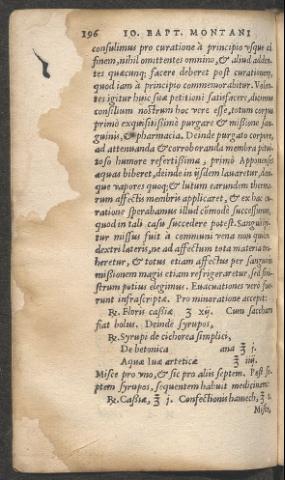 196 IO. BAPT. MONTANI
consulimus pro curatione à principio vsque ad
finem, nihil omittentes omnino, & aliud adden-
tes quæcunq; facere deberet post curationem,
quod iam à principio commemorabitur. Volen-
tes igitur huic suæ petitioni satisfacere, dicimus
consilium nostrum hoc vere esse, totum corpus
primò exquisitissimè purgare & missione san-
guinis, & pharmacia. Deinde purgato corpore,
ad attenuanda & corroboranda membra pitui-
toso humore refertissima, primò Apponenses
aquas biberet, deinde in ijsdem lauaretur, den-
que vapores quoq; & lutum earundem therma-
rum affectis membris applicaret, & ex hac cu-
ratione sperabamus illud cōmodè successurum,
quod in tali casu succedere potest. Sanguis igi-
tur missus fuit à communi vena non quidem
dextri lateris, ne ad affectum tota materia tra-
heretur, & totus etiam affectus per sanguinis
missionem magis etiam refrigeraretur, sed sini-
strum potius elegimus. Euacuationes verò fue-
runt infrascriptæ. Pro minoratione accepit:
℞. Floris cassiæ ʒ xij. Cum saccharo
fiat bolus. Deinde syrupos,
℞. Syrupi de cichorea simplici,
De betonica ana ℥ j.
Aquæ Iuæ arteticæ ℥ iiij.
Misce pro vno, & sic pro aliis septem. Post se-
ptem syrupos, sequentem habuit medicinam:
℞. Cassiæ, ℥ j. Confectionis hamech, ℥ s.
Misce,